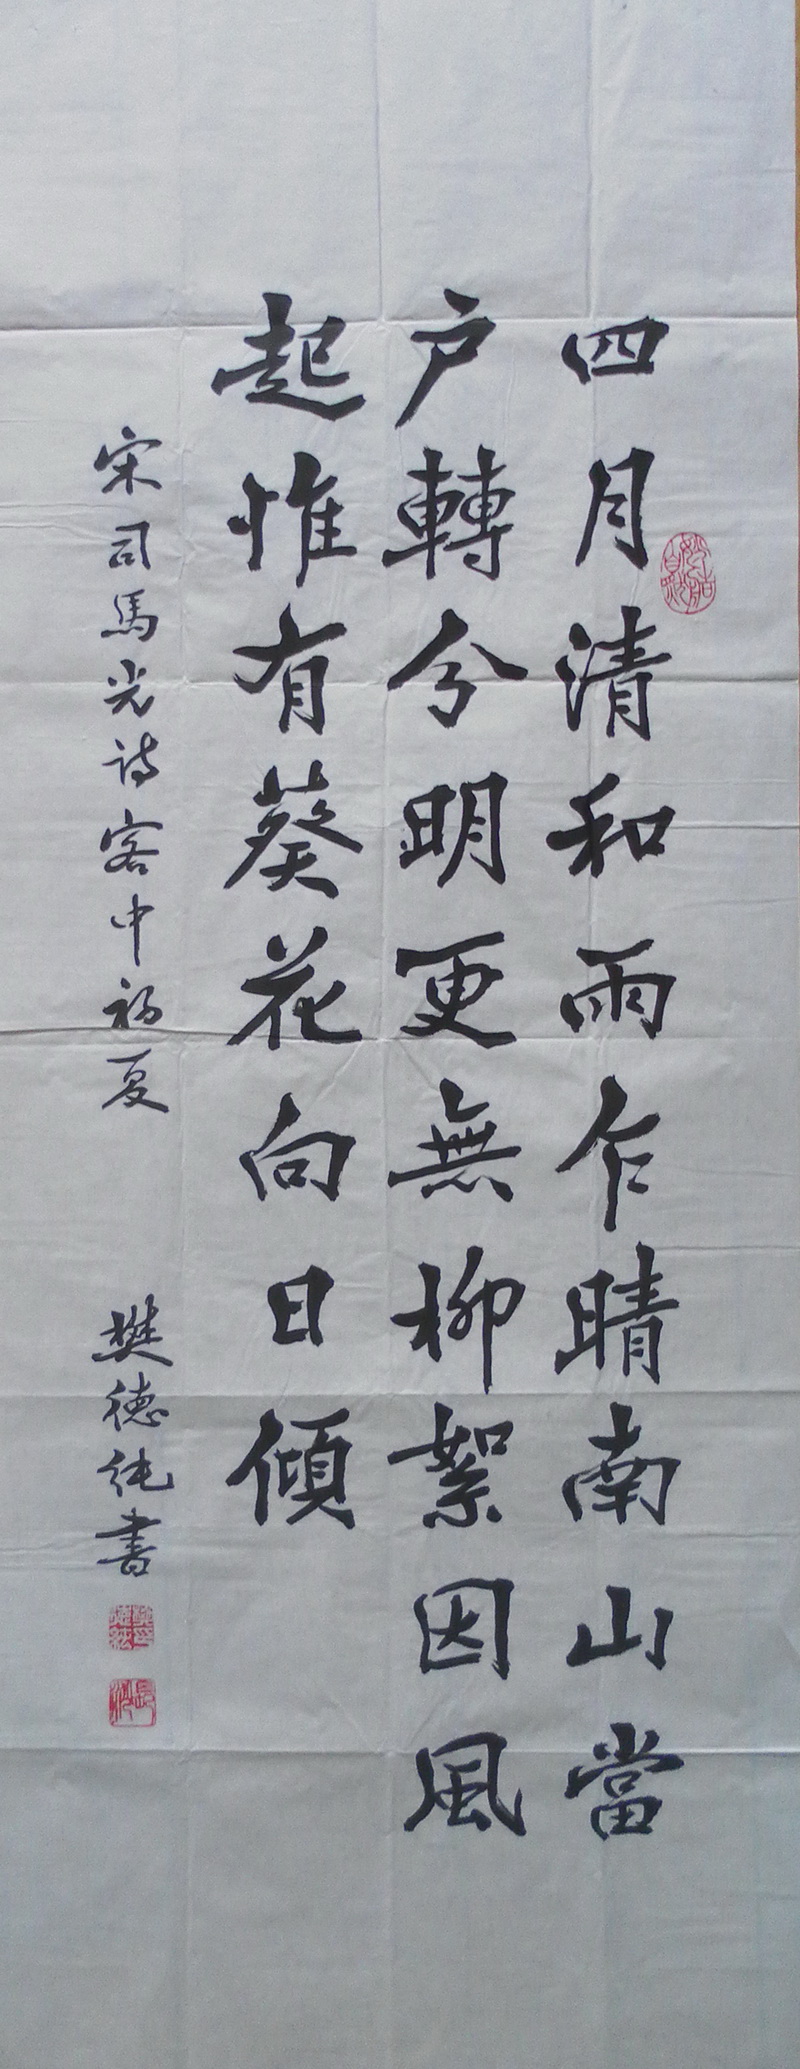 四月清和雨乍晴南山當
户轉分明更無柳絮因風
起惟有葵花向日傾
宋司馬光詩客中初夏
樊德純書